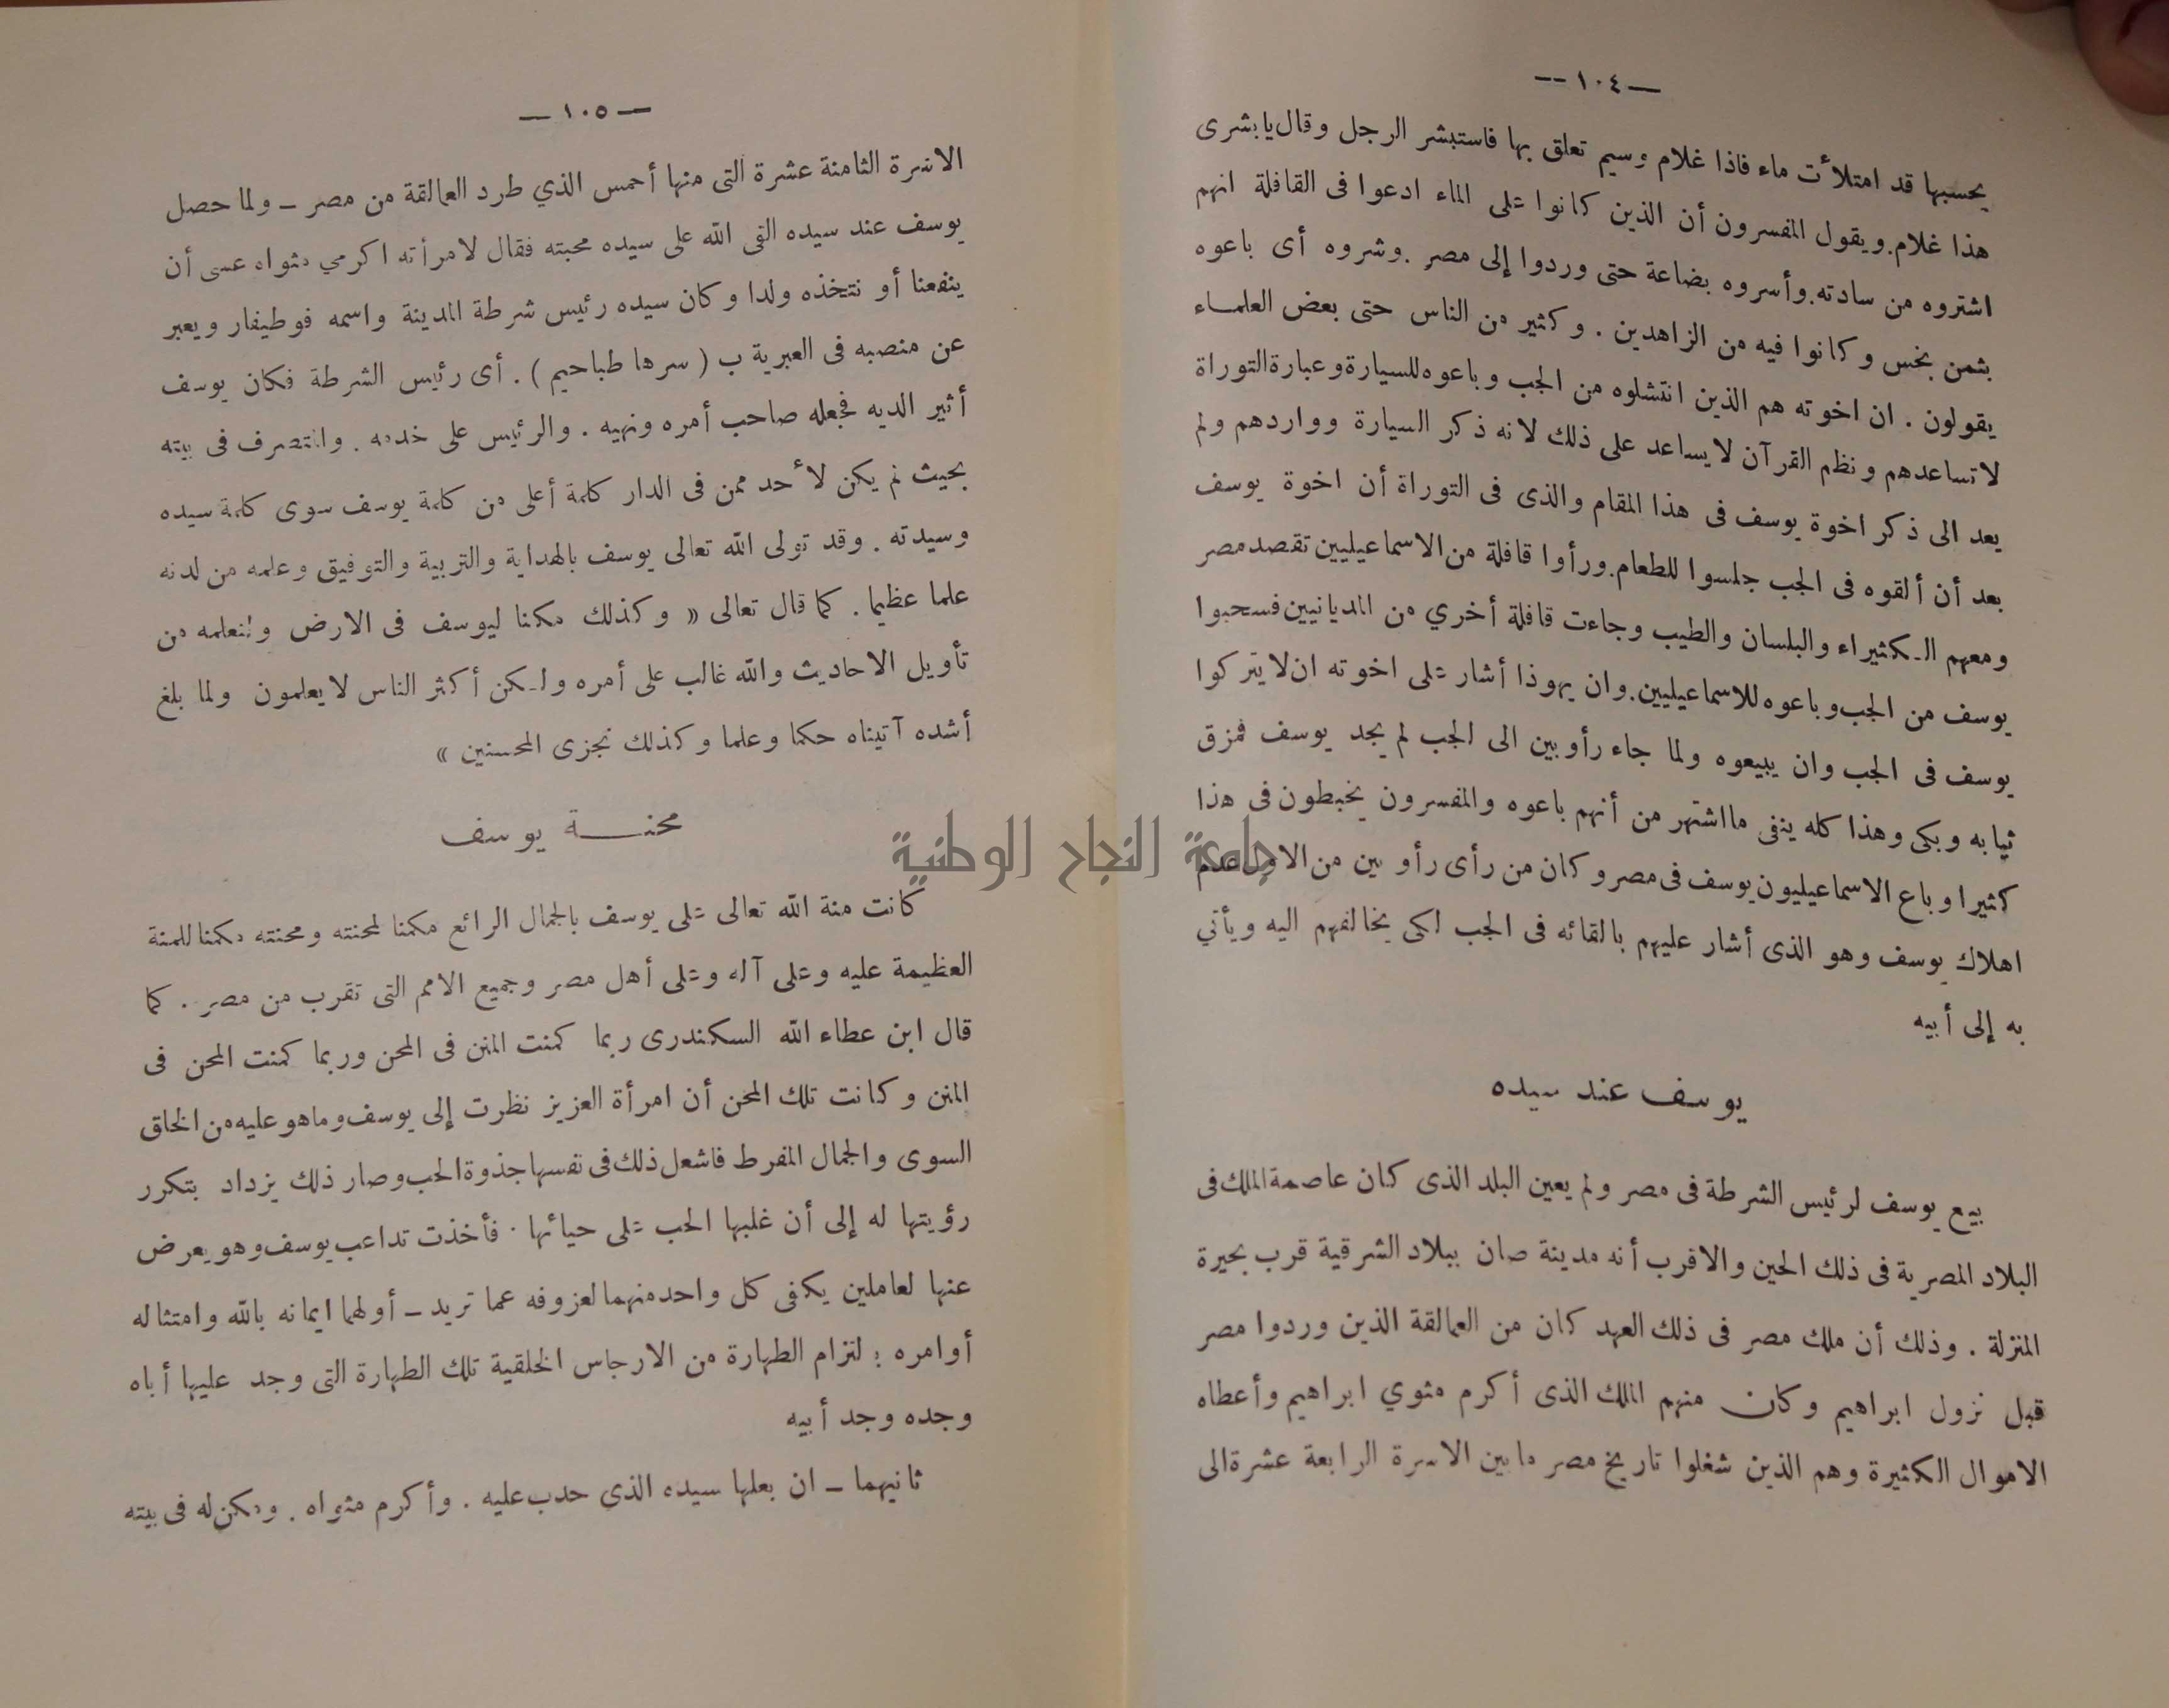 — ١٠٤ —
يحسبها قد امتلأت ماء فاذا غلام وسيم تعلق بها فاستبشر الرجل وقال يا بشرى
هذا غلام. ويقول المفسرون أن الذين كانوا على الماء ادعوا فى القافلة انهم
اشتروه من سادته. وأسروه بضاعة حتى وردوا إلى مصر. وشروه أى باعوه
بثمن بخس وكانوا فيه من الزاهدين . وكثير من الناس حتى بعض العلماء
يقولون . ان اخوته هم الذين انتشلوه من الجب وباعوه للسيارة وعبارة التوراة
لا تساعدهم ونظم القرآن لا يساعد على ذلك لانه ذكر السيارة وواردهم ولم
يعد الى ذكر اخوة يوسف فى هذا المقام والذى فى التوراة أن اخوة يوسف
بعد أن ألقوه فى الجب جلسوا للطعام. ورأوا قافلة من الاسماعيليين تقصد مصر
ومعهم الكثيراء والبلسان والطيب وجاءت قافلة أخري من المديانيين فسحبوا
يوسف من الجب وباعوه للاسماعيليين. وان يهوذا أشار على اخوته ان لا يتركوا
يوسف فى الجب وان يبيعوه ولما جاء رأوبين الى الجب لم يجد يوسف فمزق
ثيابه وبكى وهذا كله ينفى ما اشتهر من أنهم باعوه والمفسرون يخبطون فى هذا
كثيرا وباع الاسماعيليون يوسف فى مصر وكان من رأى رأوبين من الاول عدم
اهلاك يوسف وهو الذى أشار عليهم بالقائه فى الجب لكى يخالفهم اليه ويأتي
به إلى أبيه
يوسف عند سيده
بيع يوسف لرئيس الشرطة فى مصر ولم يعين البلد الذى كان عاصمة الملك فى
البلاد المصرية فى ذلك الحين والاقرب أنه مدينة صان ببلاد الشرقية قرب بحيرة
المنزلة . وذلك أن ملك مصر فى ذلك العهد كان من العمالقة الذين وردوا مصر
قبل نزول ابراهيم وكان منهم الملك الذى أكرم مثوي ابراهيم وأعطاه
الاموال الكثيرة وهم الذين شغلوا تاريخ مصر ما بين الاسرة الرابعة عشرة الى
— ١٠٥ —
الاسرة الثامنة عشرة التى منها أحمس الذي طرد العمالقة من مصر — ولما حصل
يوسف عند سيده القى الله على سيده محبته فقال لامرأته اكرمي مثواه عسى أن
ينفعنا أو نتخذه ولدا وكان سيده رئيس شرطة المدينة واسمه فوطيفار ويعبر
عن منصبه فى العبرية ب ( سرها طباحيم ) . أى رئيس الشرطة فكان يوسف
أثير الديه فجعله صاحب أمره ونهيه . والرئيس على خدمه . والمتصرف فى بيته
بحيث لم يكن لأحد ممن فى الدار كلمة أعلى من كلمة يوسف سوى كلمة سيده
وسيدته . وقد تولى الله تعالى يوسف بالهداية والتربية والتوفيق وعلمه من لدنه
علما عظيما . كما قال تعالى « وكذلك مكنا ليوسف فى الارض ولنعلمه من
تأويل الاحاديث والله غالب على أمره ولكن أكثر الناس لا يعلمون ولما بلغ
أشده آتيناه حكما وعلما وكذلك نجزى المحسنين »
محنــة يوسف
كانت منة الله تعالى على يوسف بالجمال الرائع مكمنا لمحنته ومحنته مكمنا للمنة
العظيمة عليه وعلى آله وعلى أهل مصر وجميع الامم التى تقرب من مصر . كما
قال ابن عطاء الله السكندرى ربما كمنت المنن فى المحن وربما كمنت المحن فى
المنن وكانت تلك المحن أن امرأة العزيز نظرت إلى يوسف وما هو عليه من الخلق
السوى والجمال المفرط فاشعل ذلك فى نفسها جذوة الحب وصار ذلك يزداد بتكرر
رؤيتها له إلى أن غلبها الحب على حيائها . فأخذت تداعب يوسف وهو يعرض
عنها لعاملين يكفى كل واحد منهما لعزوفه عما تريد — أولهما ايمانه بالله وامتثاله
أوامره ؛ لتزام الطهارة من الارجاس الخلقية تلك الطهارة التى وجد عليها أباه
وجده وجد أبيه
ثانيهما — ان بعلها سيده الذي حدب عليه . وأكرم مثواه . ومكن له فى بيته
جامعة النجاح الوطنية